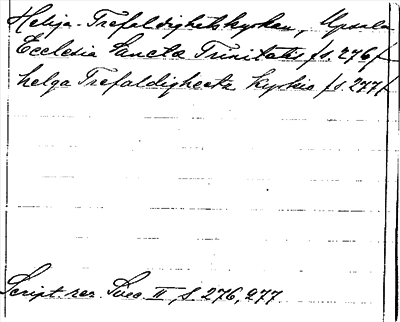 Heliga Trefaldighetskyrkan, Upsala
Ecclesia Sancta Trinitatis /s. 276/
helga Trefaldigheetz kyrkio /s. 277/
Script. rer. Svec. II, s. 276, 277.